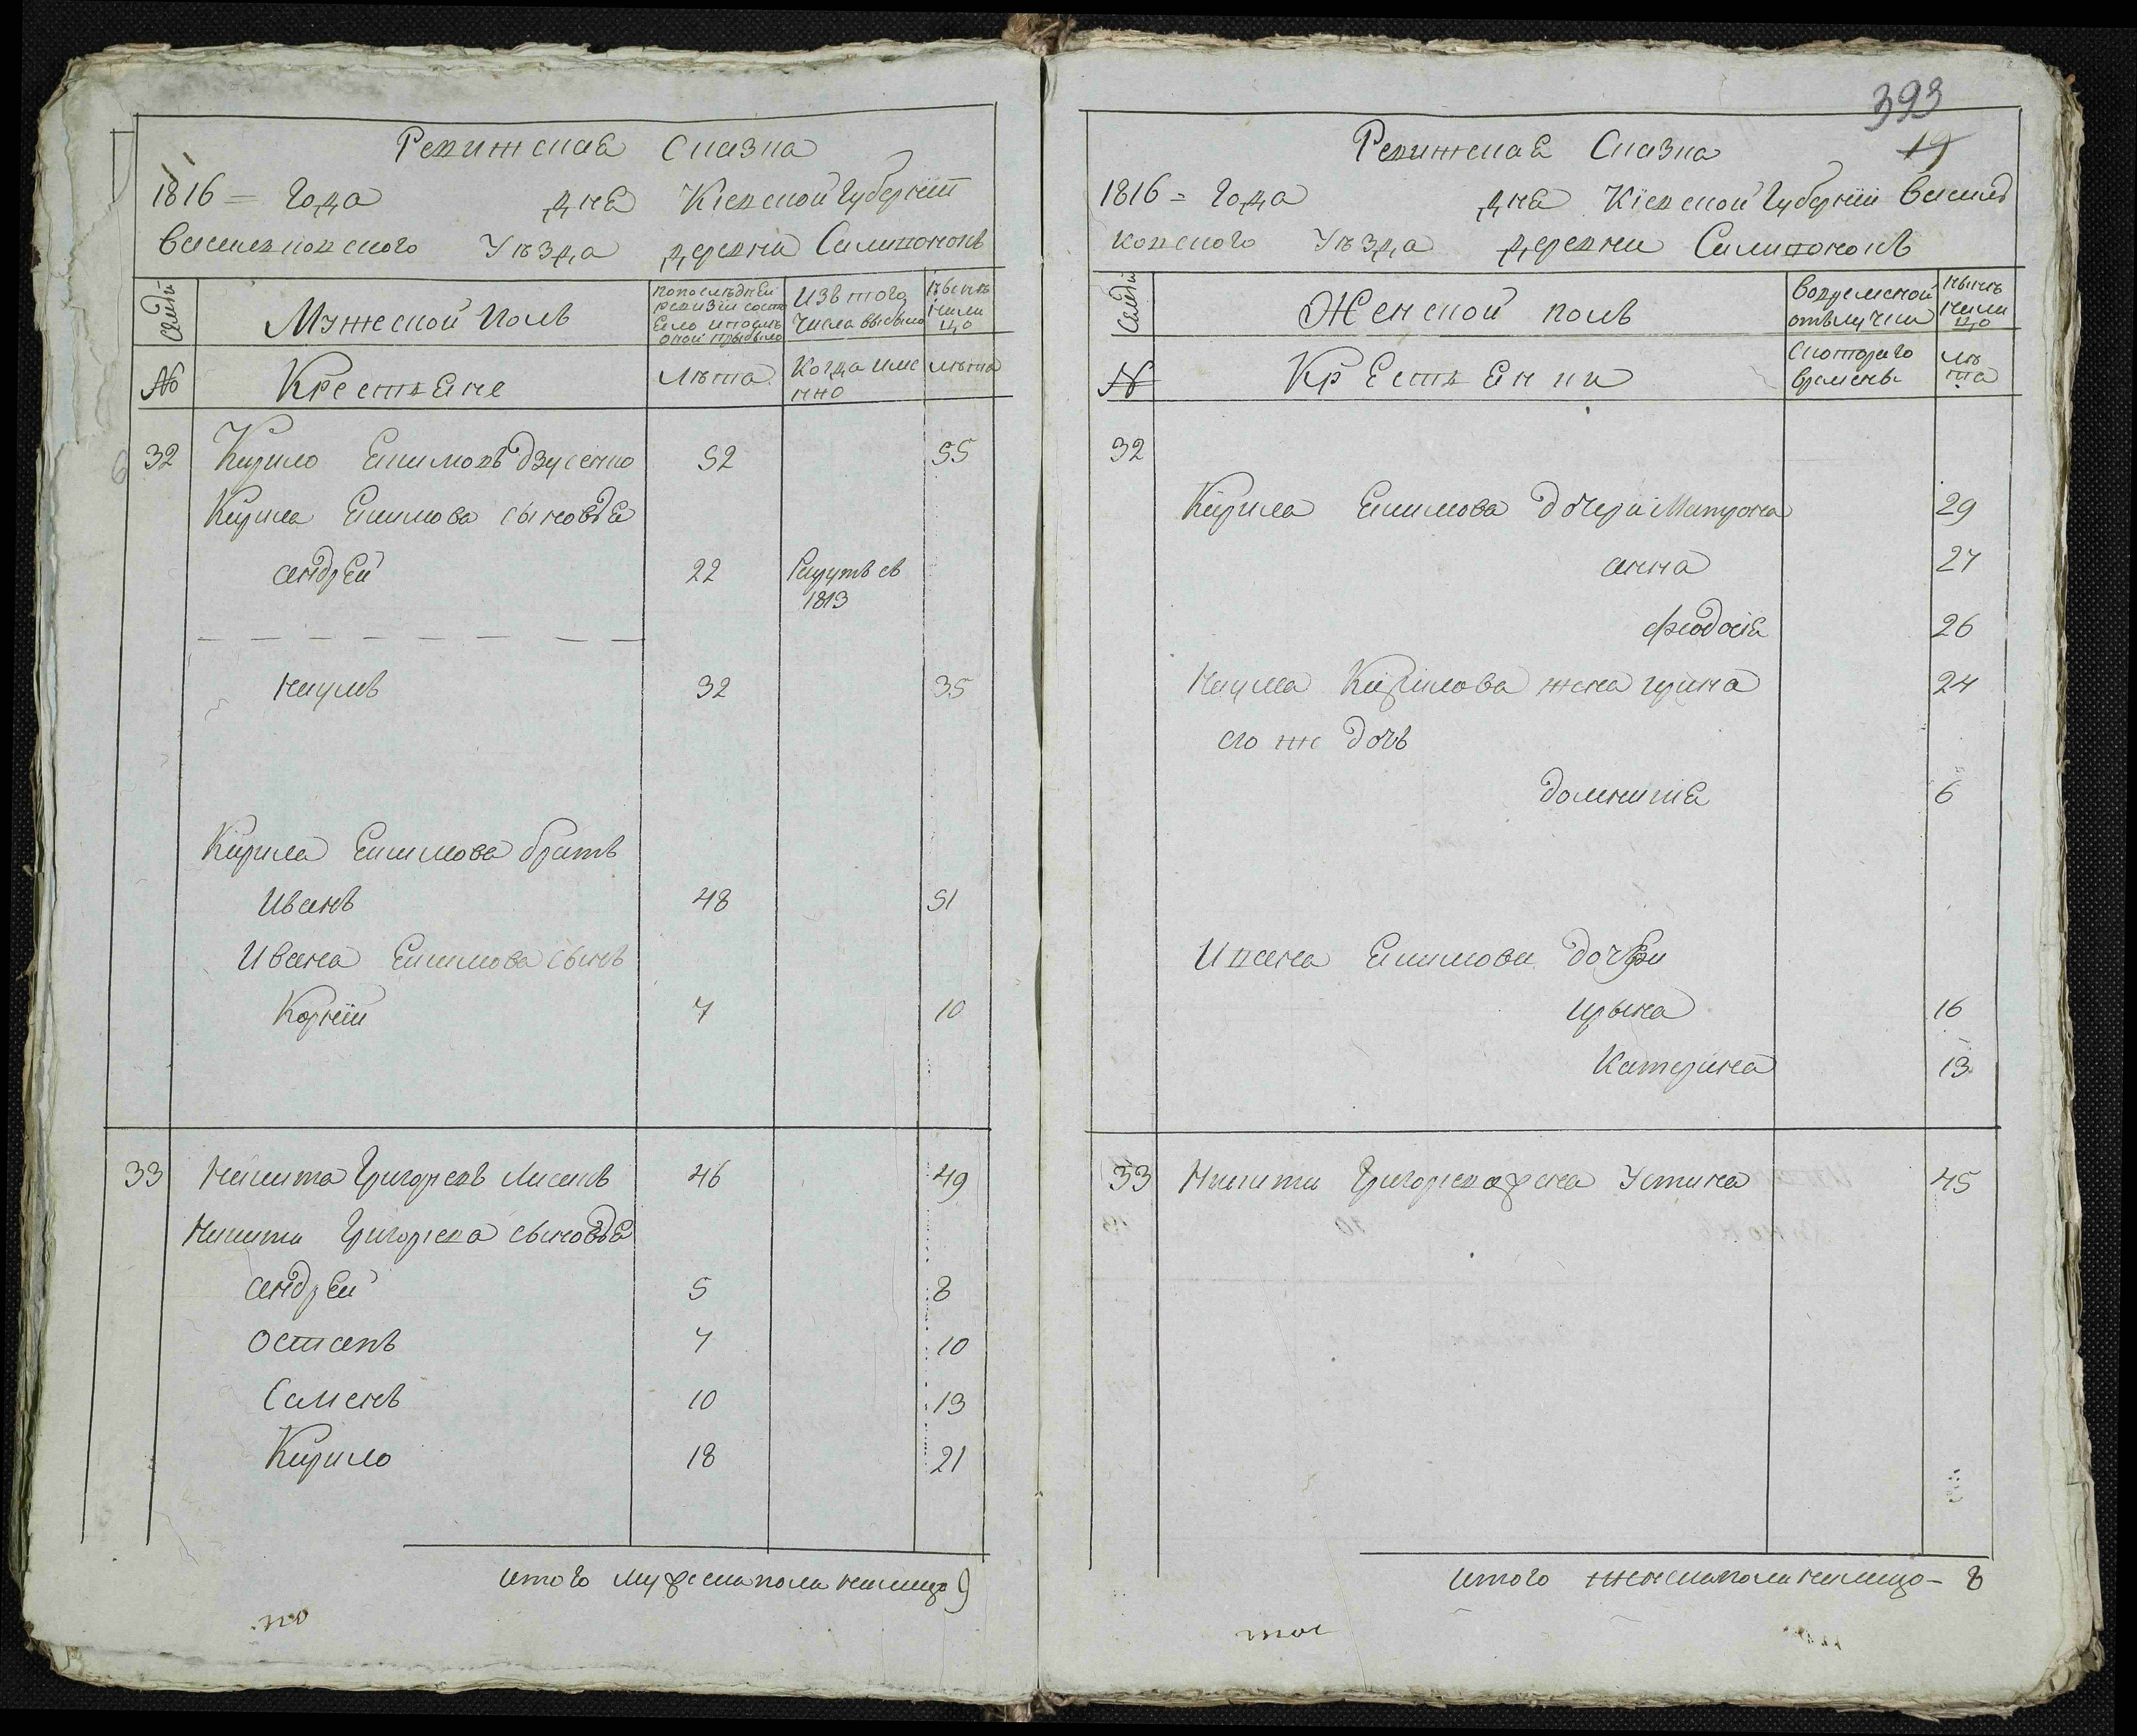 Ревижская Сказка
1816 = Года дня Кіевской Губерніи
Василковского Уѣзда деревни Салихонокъ
Семьи
Мужеской Полъ
попослѣдней
ревизіи состо
яло ипослѣ
оной прыбыло
Изъ того
числа выбыло
нынѣ
нали
цо
№
Крестяне
лѣта
Когда име
нно
лѣта
32 Кирило Екимовъ дзусенко 52 55
Кирила Екимова сыновья
андрей 22 Рекрутъ въ
1813
наумъ 32 35
Кирила Екимова братъ
Иванъ 48 51
Ивана Екимова сынъ
Корній 7 10
33 Никита Григорьевъ Лисакъ 46 49
Никиты Григорьева сыновья
андрей 5 8
Остапъ 7 10
Саменъ 10 13
Кирило 18 21
итого мужеска пола налицо 9
по
393
19
Ревижская Сказка
1816 = Года дня Кіевской Губерніи Васил
ковского Уѣзда деревни Салихонокъ
Семьи
Женской полъ
Вовременой
отълучки
нынѣ
нали
цо
№
Крестянки
Скоторого
времены
лѣ
та
32
Кирила Екимова дочери Матрона 29
анна 27
Феодосія 26
Наума Кирилова жена ирина 24
его же дочь
домникія 6
Ивана Екимова дочери
ирына 16
Катерина 13
33 Никиты Григорьева жена Устина 45
итого женска пола налицо - 8
тое